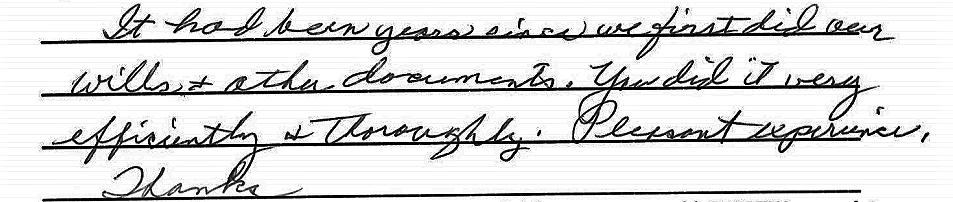 It had been years since we first did our
wills & other documents. You did it very
efficiently & thoroughly. Pleasant experience.
Thanks